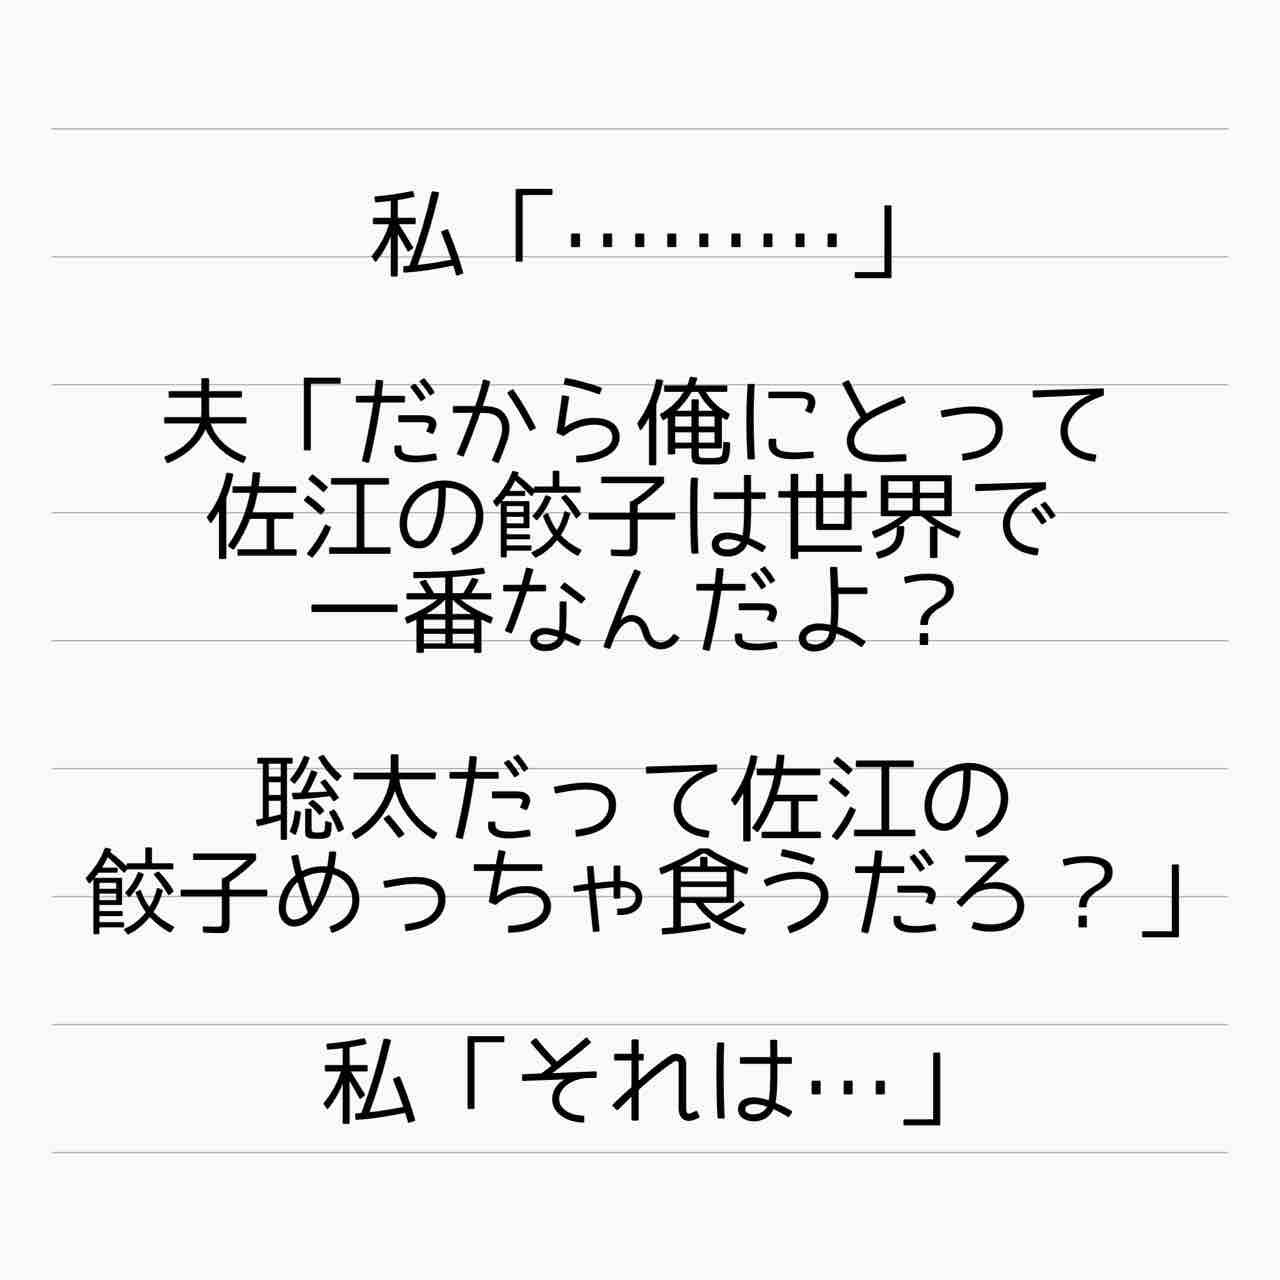 私「………」
夫「だから俺にとって
佐江の餃子は世界で
一番なんだよ？
聡太だって佐江の
餃子めっちゃ食うだろ？」
私「それは…」